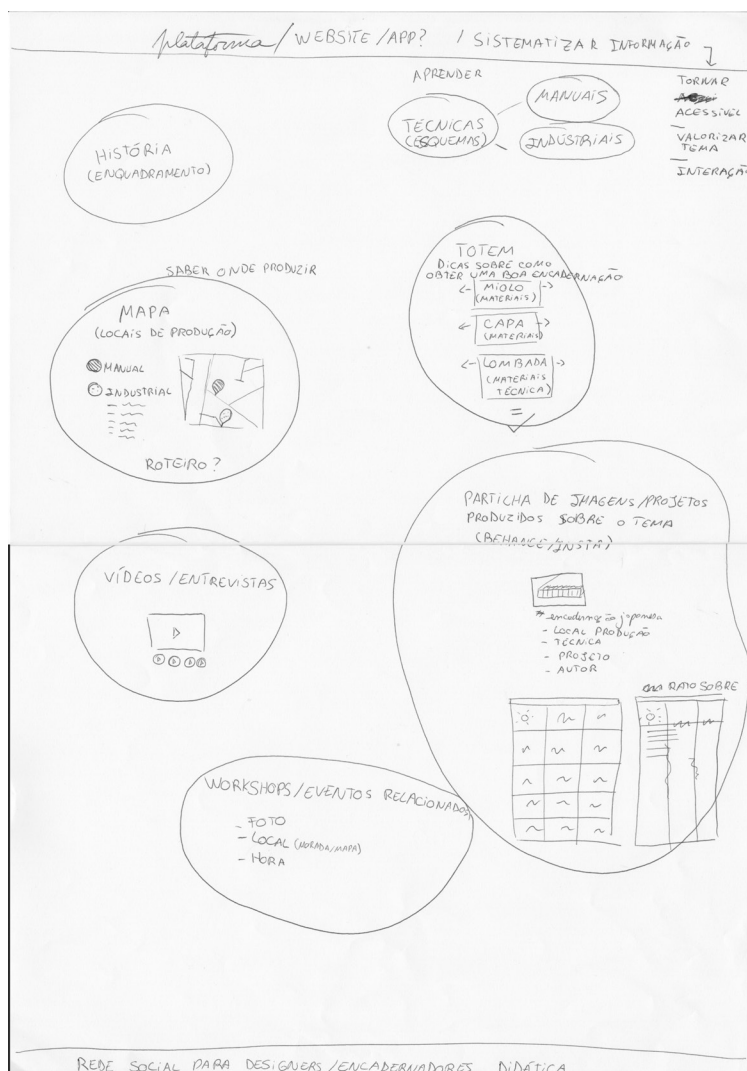 plataforma / WEBSITE / APP? / SISTEMATIZAR INFORMAÇÃO
TORNAR
ACESSÍVEL
VALORIZAR
TEMA
INTERAÇÃO
APRENDER
TÉCNICAS
(ESQUEMAS)
MANUAIS
INDUSTRIAIS
HISTÓRIA
(ENQUADRAMENTO)
SABER ONDE PRODUZIR
MAPA
(LOCAIS DE PRODUÇÃO)
MANUAL
INDUSTRIAL
ROTEIRO?
TOTEM
DICAS SOBRE COMO
OBTER UMA BOA ENCADERNAÇÃO
MIOLO
(MATERIAIS)
CAPA
(MATERIAIS)
LOMBADA
(MATERIAIS
TÉCNICA)
=
PARTILHA DE IMAGENS/PROJETOS
PRODUZIDOS SOBRE O TEMA
(BEHANCE/INSTA)
* encadernação japonesa
- LOCAL PRODUÇÃO
- TÉCNICA
- PROJETO
- AUTOR
RATO SOBRE
VÍDEOS / ENTREVISTAS
WORKSHOPS/EVENTOS RELACIONADOS
- FOTO
- LOCAL (MORADA/MAPA)
- HORA
REDE SOCIAL PARA DESIGNERS / ENCADERNADORES DIDÁTICA